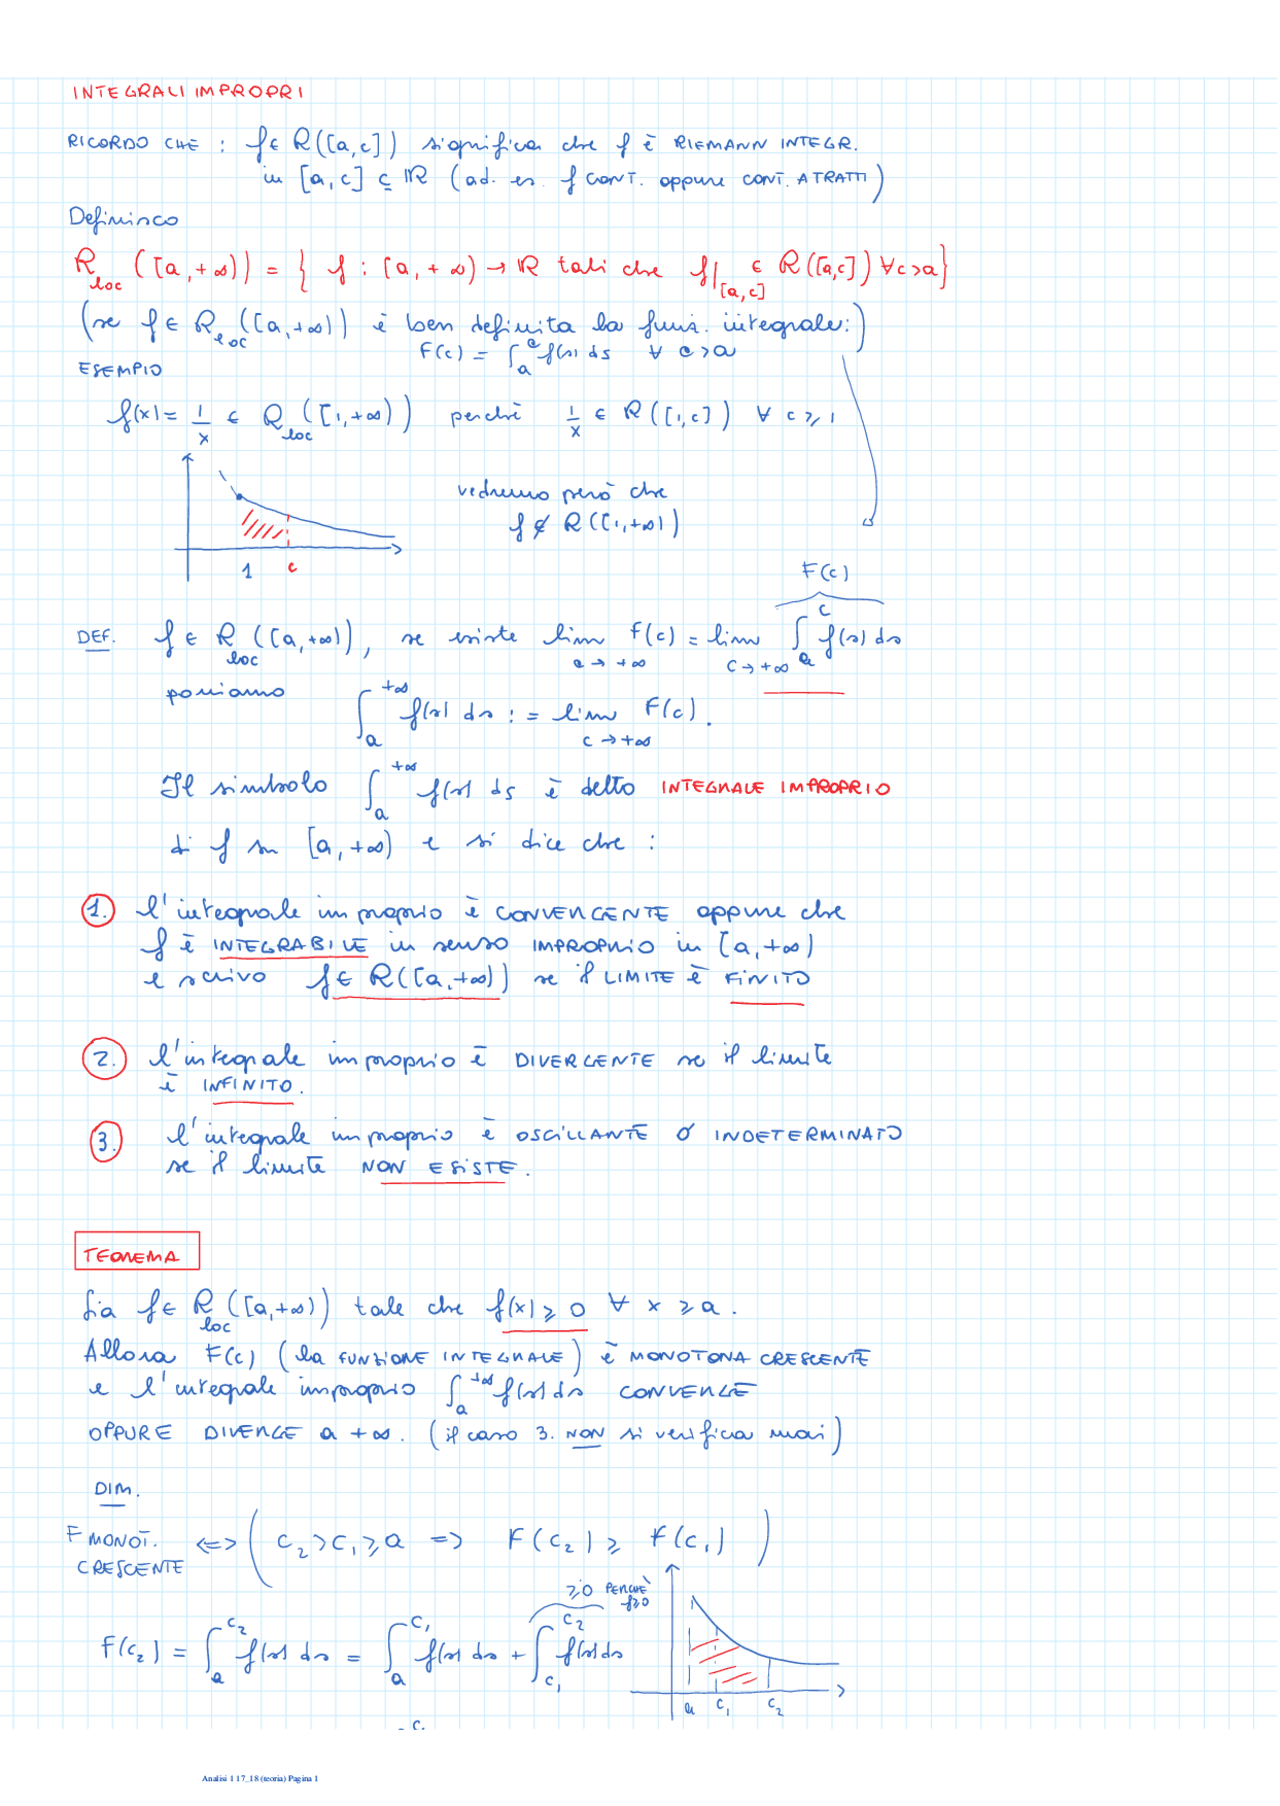 INTEGRALI IMPROPRI
RICORDO CHE : f ∈ R([a,c]) significa che f è RIEMANN INTEGR.
in [a,c] ⊆ ℝ (ad. es. f CONT. oppure CONT. A TRATTI)
Definisco
R_loc ([a,+∞)) = { f : [a,+∞) → ℝ tali che f|_[a,c] ∈ R([a,c]) ∀c>a}
(se f ∈ R_loc([a,+∞)) è ben definita la funz. integrale:)
F(c) = ∫_a^c f(s) ds ∀ c>a
ESEMPIO
f(x) = 1/x ∈ R_loc([1,+∞)) perchè 1/x ∈ R([1,c]) ∀ c ⩾ 1
vedremo però che
f ∉ R([1,+∞))
1 c
F(c)
DEF. f ∈ R_loc([a,+∞)), se esiste lim_{c→+∞} F(c) = lim_{c→+∞} ∫_a^c f(s) ds
poniamo
∫_a^{+∞} f(s) ds := lim_{c→+∞} F(c).
Il simbolo ∫_a^{+∞} f(s) ds è detto INTEGRALE IMPROPRIO
di f su [a,+∞) e si dice che :
1. l'integrale improprio è CONVERGENTE oppure che
f è INTEGRABILE in senso IMPROPRIO in [a,+∞)
e scrivo f ∈ R([a,+∞)) se il LIMITE è FINITO
2. l'integrale improprio è DIVERGENTE se il limite
è INFINITO.
3. l'integrale improprio è OSCILLANTE O INDETERMINATO
se il limite NON ESISTE.
TEOREMA
Sia f ∈ R_loc([a,+∞)) tale che f(x) ⩾ 0 ∀ x ⩾ a.
Allora F(c) (la FUNZIONE INTEGRALE) è MONOTONA CRESCENTE
e l'integrale improprio ∫_a^{+∞} f(s) ds CONVERGE
OPPURE DIVERGE a +∞. (il caso 3. NON si verifica mai)
DIM.
F MONOT. CRESCENTE ⟺ ( c₂ > c₁ ⩾ a ⟹ F(c₂) ⩾ F(c₁) )
⩾0 PERCHÈ f⩾0
F(c₂) = ∫_a^{c₂} f(s) ds = ∫_a^{c₁} f(s) ds + ∫_{c₁}^{c₂} f(s) ds
a c₁ c₂
c₁
Analisi 1 17_18 (teoria) Pagina 1